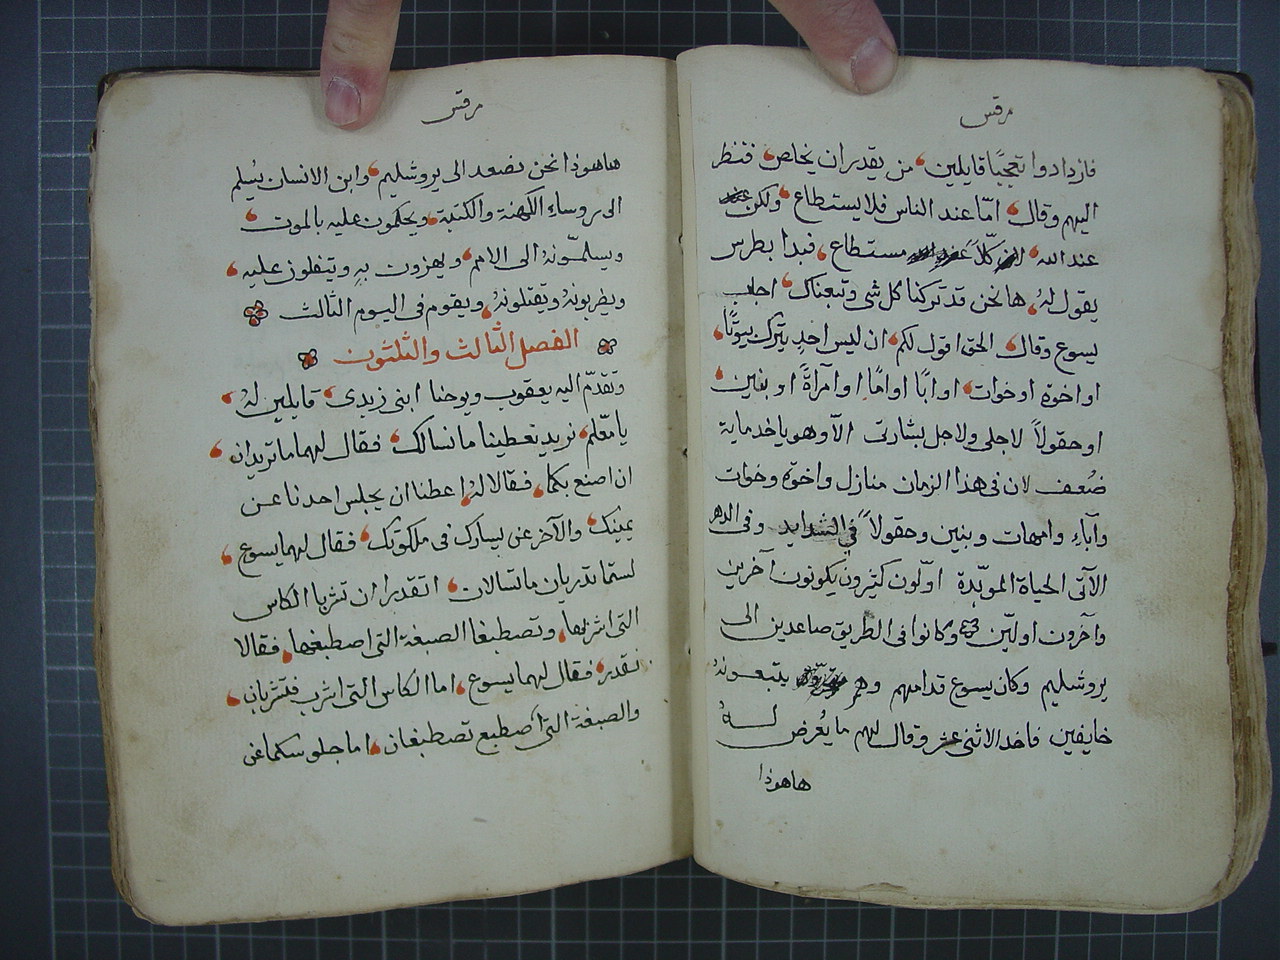 مرقس
فازدادوا تعجبًا قايلين من يقدر ان يخلص فنظر
اليهم وقال امّا عند الناس فلا يستطاع ولكن
عند الله لان كلاً عند الله مستطاع فبدا بطرس
يقول لهُ ها نحن قد تركنا كل شى وتبعناك اجاب
يسوع وقال الحق اقول لكم ان ليس احدٍ يترك بيوتًا
او اخوة او خوات او ابًا او امًا او امرآةً او بنين
او حقولاً لاجلى ولاجل بشارتى الاّ وهو ياخد ماية
ضُعف لان فى هذا الزمان منازل واخوة وخوات
وآباءِ وامهات وبنين وحقولاً فى الشدايد وفى الدهر
الآتى الحياة الموبّدة اوّلون كثيرون يكونون آخرين
وآخرون اولين وكانوا فى الطريق صاعدين الى
يروشليم وكان يسوع قدامهم وهم يتبعونهُ
خايفين فاخد الاثنى عشر وقال لهم ما يعُرض لهُ
هاهوذا
مرقس
هاهوذا نحن نصعد الى يروشليم وابن الانسان يُسلم
الى روساءِ الكهنة والكتبة ويحكمون عليه بالموت
ويسلمّونهُ الى الامم ويهزون بهِ ويتفلون عليه
ويضربونهُ ويقتلونهُ ويقوم فى اليوم الثالث
الفصل الثالث والثلثون
وتقدّم اليه يعقوب ويوحنا ابنى زبدى قايلين لهُ
يا معّلم نريد تعطينا ما نسالك فقال لهما ما تريدان
ان اصنع بكما فقالا لهُ اعطنا ان يجلس احدنا عن
يمينك والآخر عن يسارك فى ملكوتك فقال لهما يسوع
لستما تدريان ما تسالان اتقدران ان تشربا الكاس
التى اشربها وتصطبغا الصبغة التى اصطبغها فقالا
نقدر فقال لهما يسوع اما الكاس التى اشرب فتشربان
والصبغة التى اصطبع تصطبغان اما جلوسكما عن